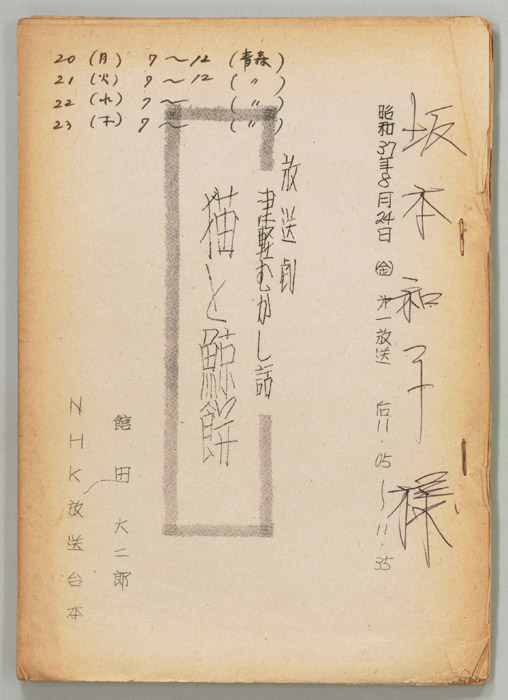 20 (月) 7〜12 (青森)
21 (火) 9〜12 (〃)
22 (水) 7〜 (〃)
23 (木) 9〜 (〃)
坂本和子様
昭和37年8月24日 ㊎ 第一放送 后11.05〜11.35
放送劇
津軽むかし話
猫と鯨餅
館田大二郎
NHK放送台本